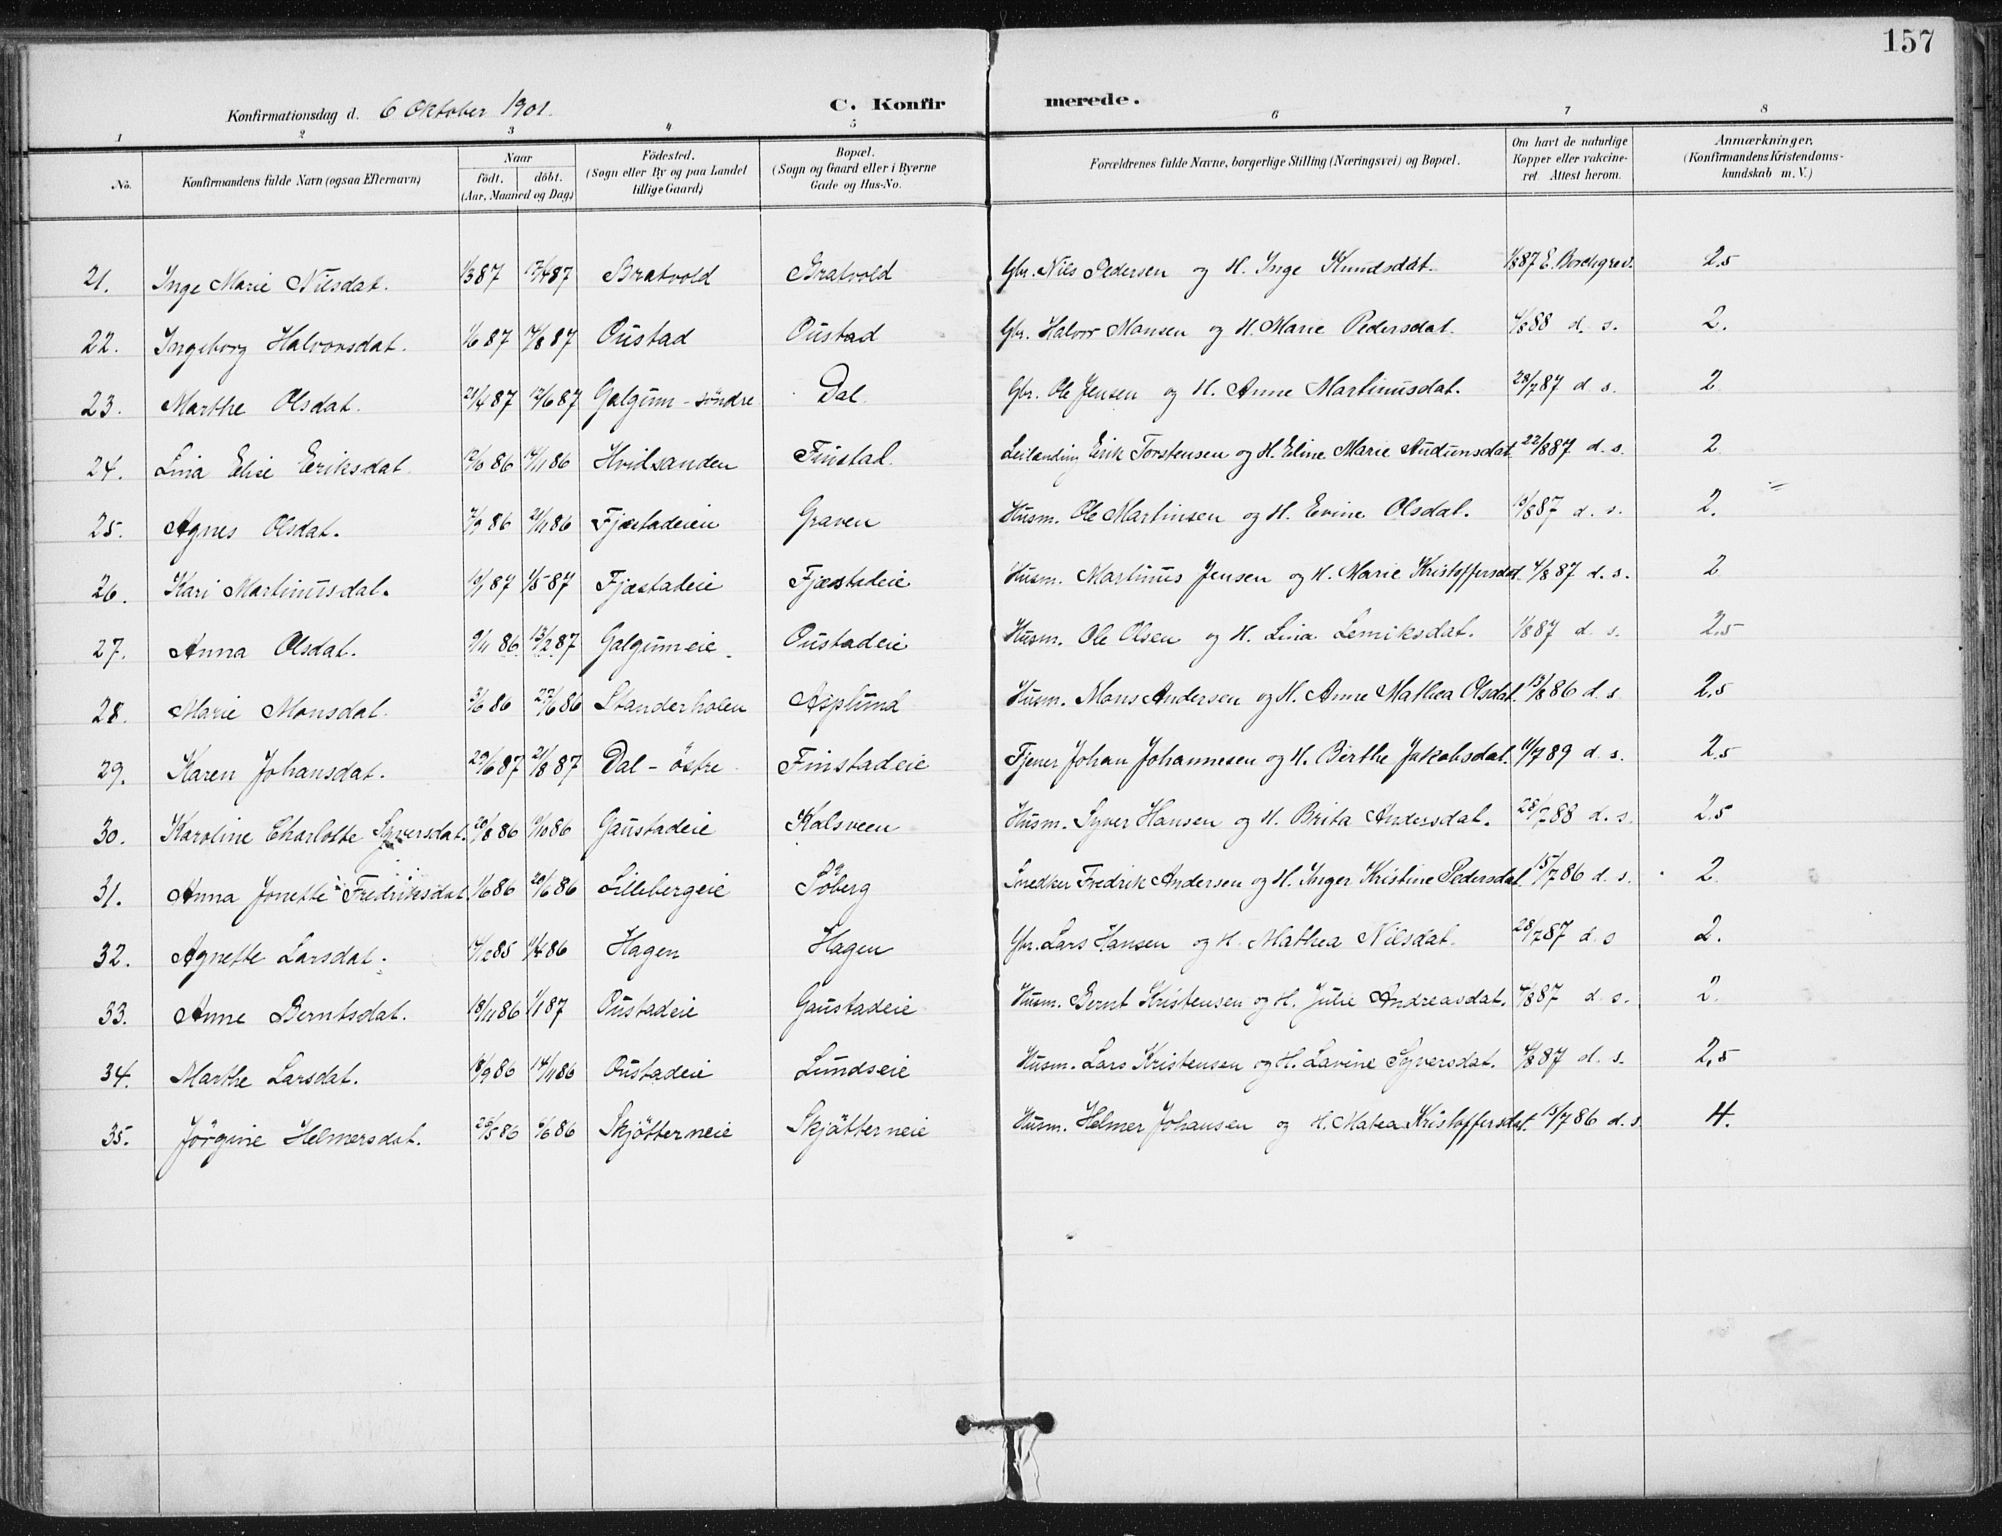 157
Konfirmationsdag d. 6 Oktober 1901. C. Konfirmerede.
1 2 3 4 5 6 7 8
No. Konfirmandens fulde Navn (ogsaa Efternavn) Naar födt. döbt. (Aar, Maaned og Dag) Födested. (Sogn eller By og paa Landet tillige Gaard) Bopæl. (Sogn og Gaard eller i Byerne Gade og Hus-No. Forældrenes fulde Navne, borgerlige Stilling (Næringsvei) og Bopæl. Om havt de naturlige Kopper eller vakcineret. Attest herom. Anmærkninger. (Konfirmandens Kristendomskundskab m. V.)
21. Inge Marie Nilsdat. 1/3 87 17/4 87 Bratvold Bratvold Gbr. Nils Pedersen og H. Inge Knudsdat. 1/8 87 E. Borchgrev. 2.5
22. Ingeborg Halvorsdat. 1/6 87 7/8 87 Oustad Oustad Gbr. Halvor Mansen og H. Marie Pedersdat. 4/8 88 d. s. 2.
23. Marthe Olsdat. 21/4 87 12/6 87 Galgum - söndre Dal Gbr. Ole Jensen og H. Anne Martinusdat. 28/7 87 d s. 2
24. Lina Elise Eriksdat 86 14/11 86 Hvilsanden Finstad. Leilænding Erik Torstensen og H. Eline Marie Audunsdat 22/8 87 d. s. 2
25. Agnes Olsdat. 7/9 86 21/11 86 Fjæstadeien Graven Husm. Ole Martinsen og H. Evine Olsdat. 19/8 87 d. s. 2.
26. Kari Martinusdat. 10/1 87 1/5 87 Fjæstadeie Fjæstadeie Husm. Martinus Jensen og H. Marie Kristoffersdat. 4/8 87 d. s. 2
27. Anna Olsdat. 9/11 86 13/2 87 Galgumeie Oustadeie Husm. Ole Olsen og H. Lina Lemiksdat. 1/8 87 d. s. 2.5
28. Marie Monsdat. 3/6 86 27/6 86 Standerholen Asplund Husm. Mons Andersen og H. Anne Mathea Olsdat. 13/8 86 d. s. 2.5
29. Karen Johansdat. 29/6 87 21/8 87 Dal - östre Finstadeie Tjener Johan Johannesen og H. Berthe Jakobsdat. 11/7 89 d. s. 2.5
30. Karoline Charlotte Syversdat. 26/8 86 86 Gaustadeie Kalsveen Husm. Syver Hansen og H. Brita Andersdat. 28/7 88 d. s. 2.5
31. Anna Jonette Fredriksdat. 1/6 86 20/6 86 Lillebergeie Söberg Snedker Fredrik Andersen og H. Inger Kristine Pedersdat. 15/7 86 d. s. 2.
32. Agnette Larsdat. 85 86 Hagen Hagen Gbr. Lars Hansen og H. Mathea Nilsdat. 28/7 87 d. s 2.
33. Anne Berntsdat. 18/11 86 1/1 87 Oustadeie Gaustadeie Husm. Bernt Kristensen og H. Julie Andreasdat. 4/8 87 d. s. 2.
34. Marthe Larsdat. 86 14/11 86 Oustadeie Lundseie Husm. Lars Kristensen og H. Lavine Syversdat. 4/8 87 d. s. 2,5
35. Jörgine Helmersdat. 20/5 86 6/6 86 Skjötterneie Skjötterneie Husm. Helmer Johansen og H. Matea Kristoffersdat. 15/7 86 d. s. 4.